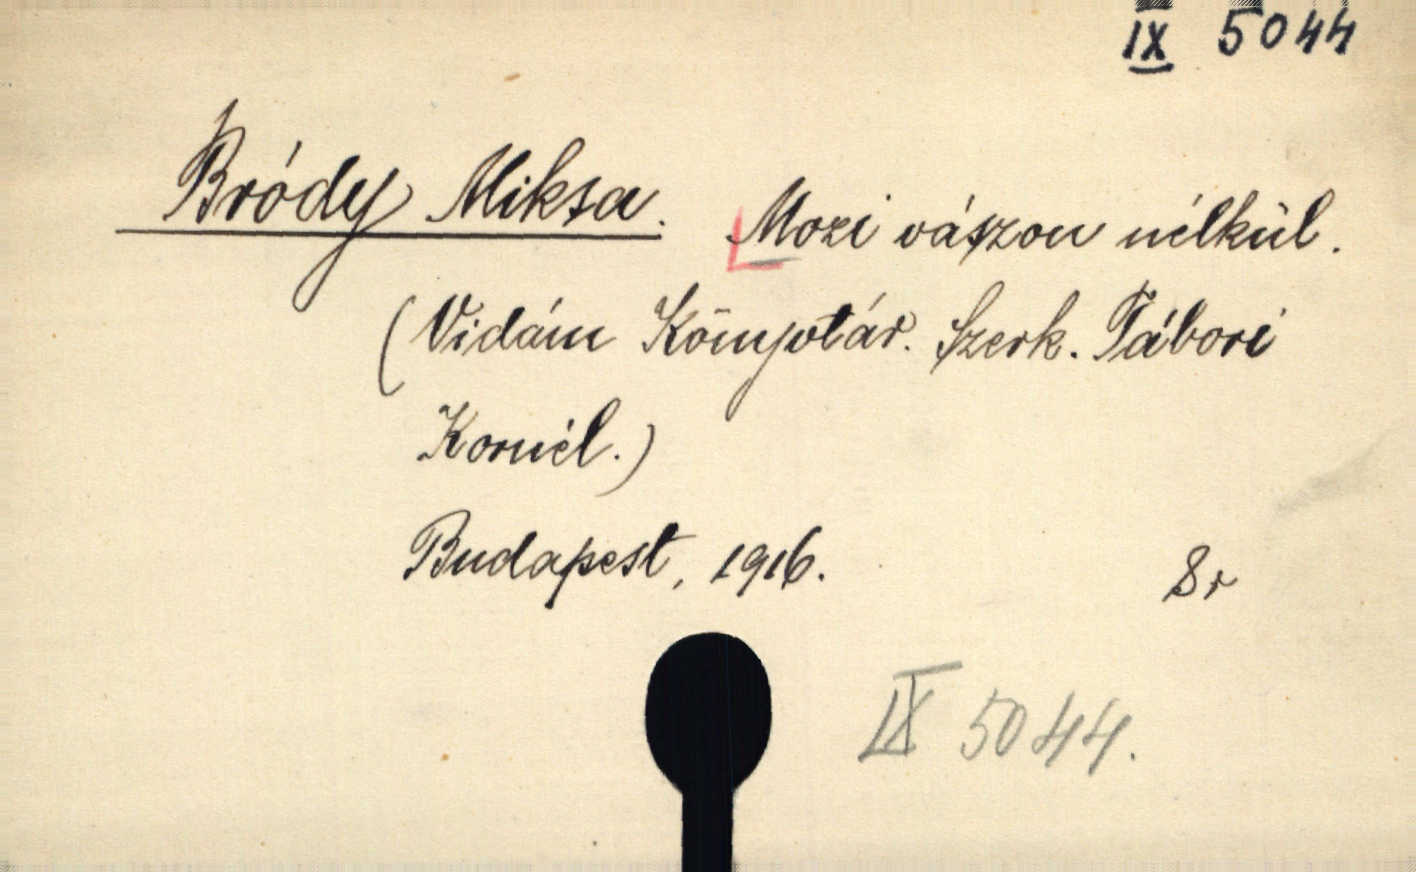 IX 5044
Bródy Miksa. Mozi vászon nélkül.
(Vidám Könyvtár. Szerk. Tábori
Kornél.)
Budapest, 1916. 8r
IX 5044.